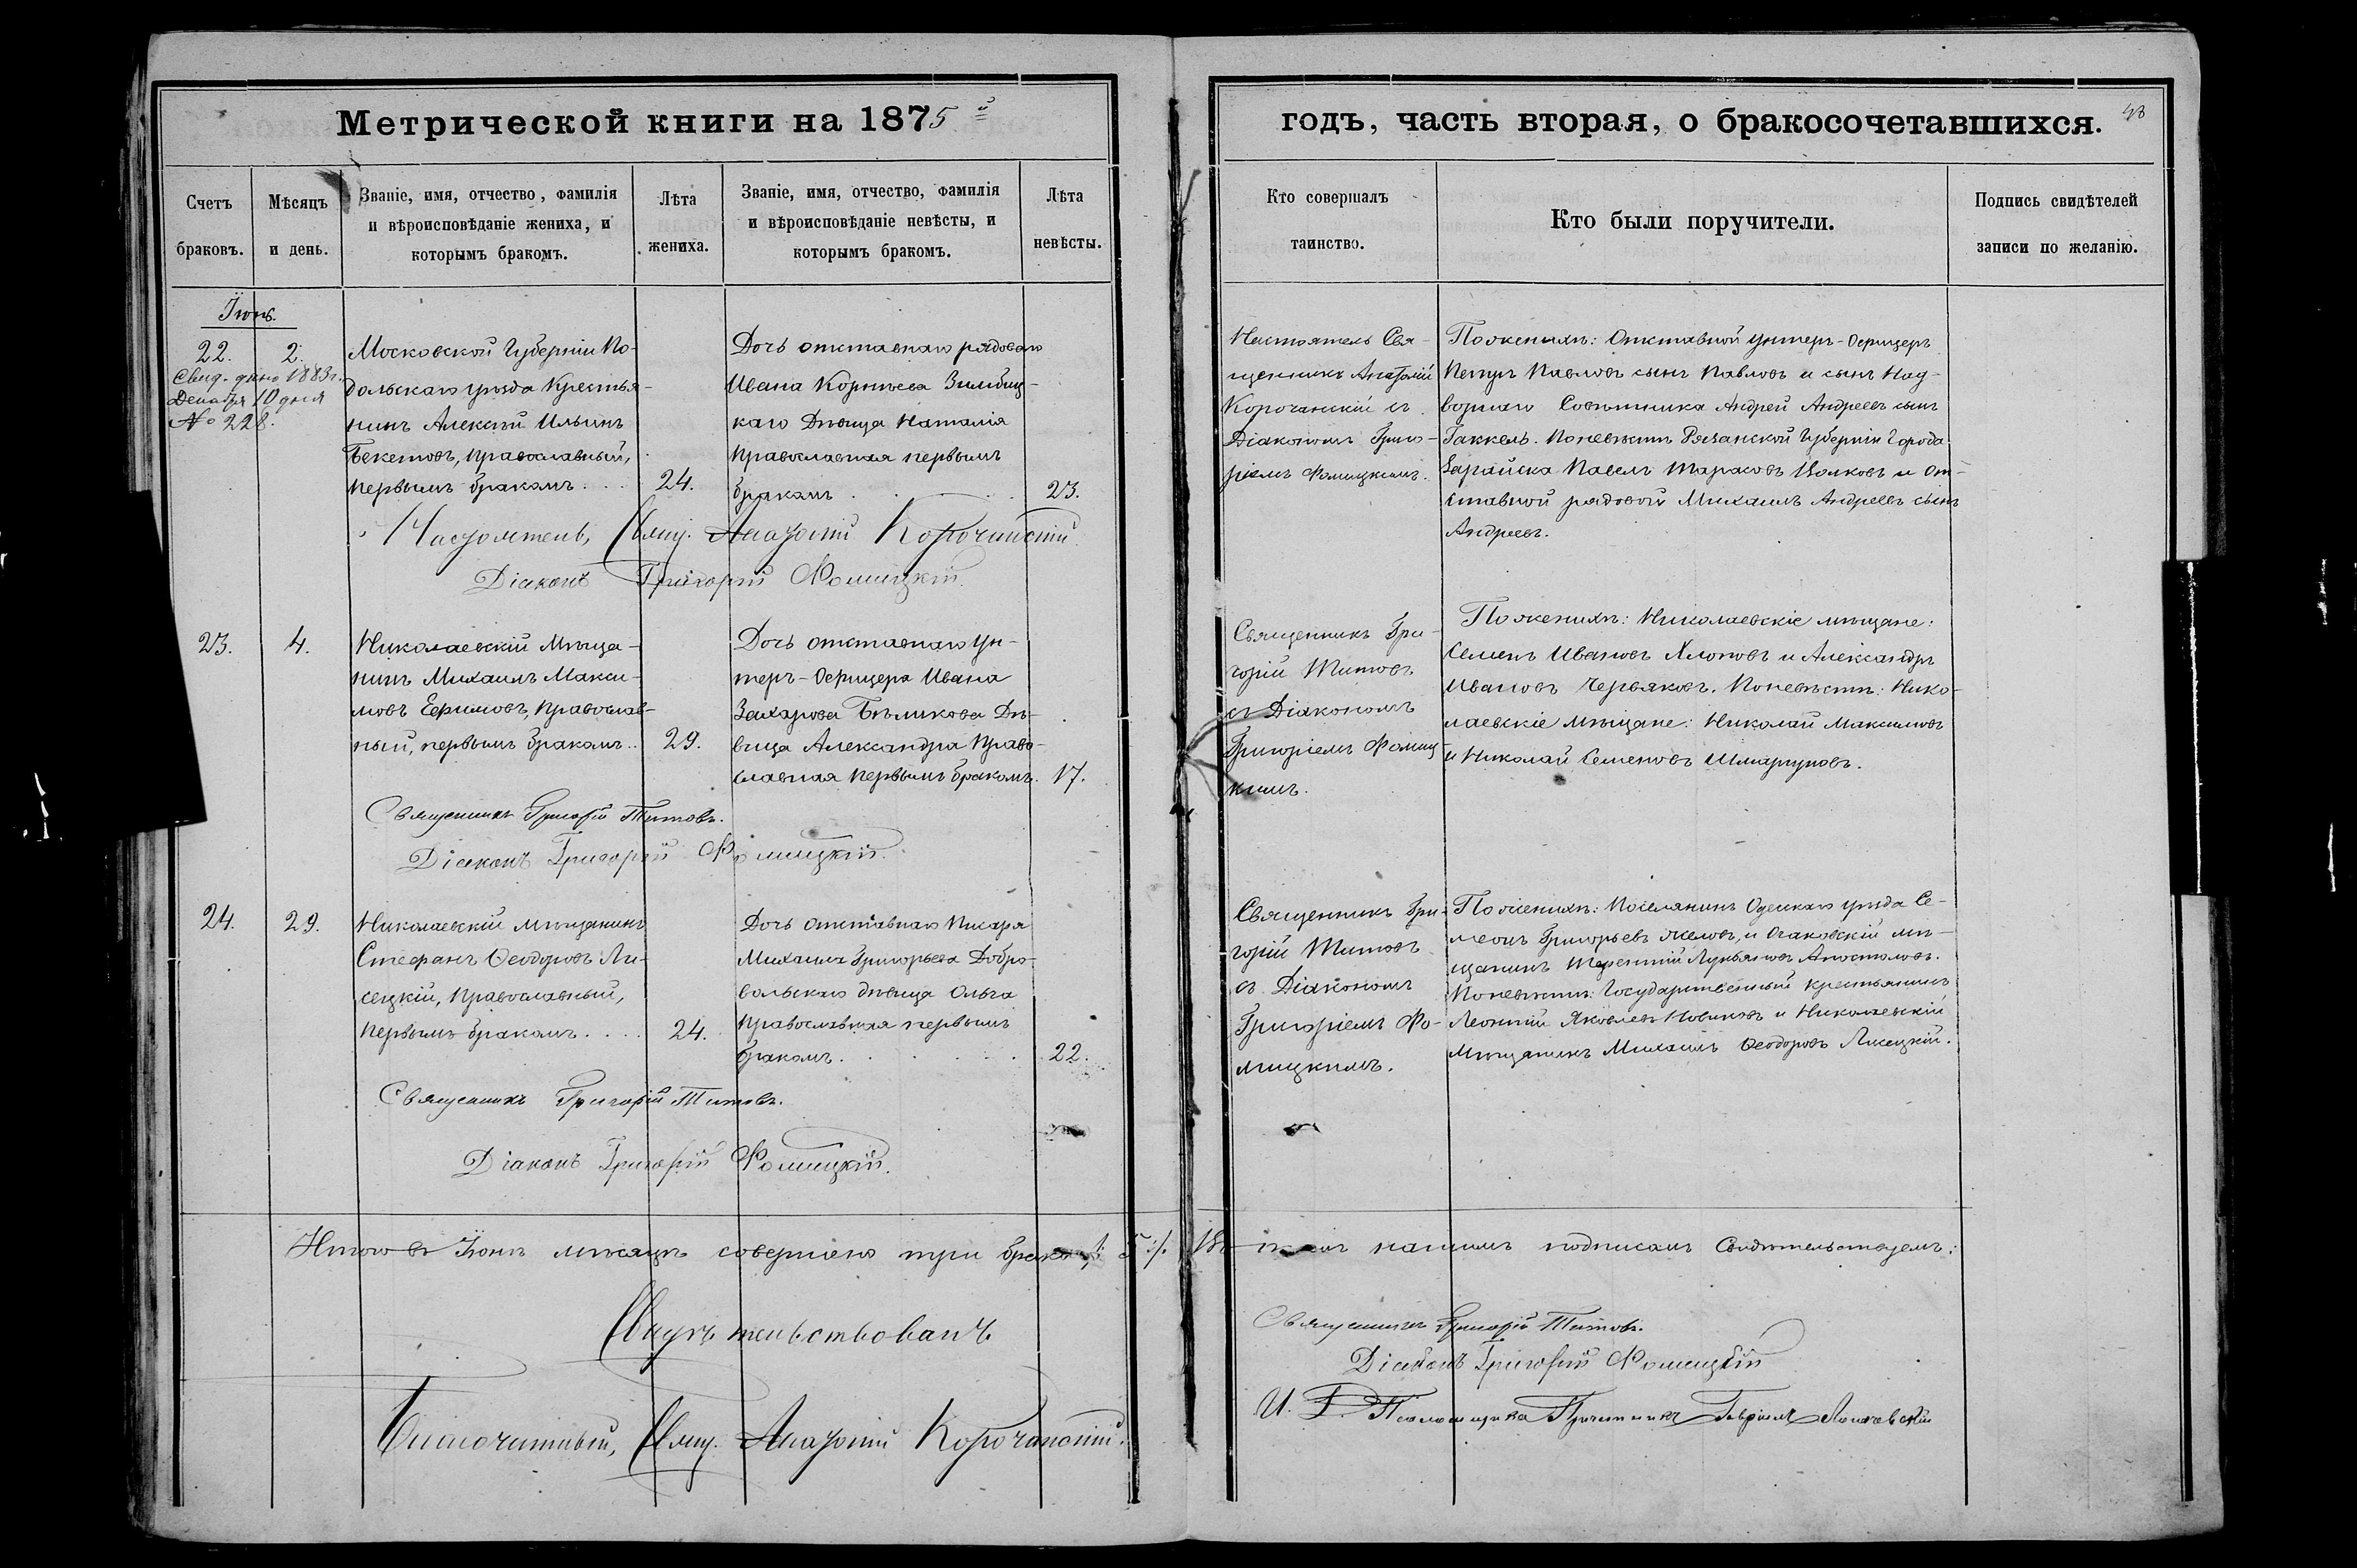 Метрической книги на 1875й
годъ, часть вторая, о бракосочетавшихся.
Счетъ браковъ.
Мѣсяцъ и день.
Званіе, имя, отчество, фамилія
и вѣроисповѣданіе жениха, и
которымъ бракомъ.
Лѣта жениха.
Званіе, имя, отчество, фамилія
и вѣроисповѣданіе невѣсты, и
которымъ бракомъ.
Лѣта невѣсты.
Кто совершалъ
таинство.
Кто были поручители.
Подпись свидѣтелей
записи по желанію.
Іюнь.
22.
2.
Свид. дано 1883г.
Декабря 10 дня
№ 228.
Московской Губерніи По-
дольскаго уѣзда Крестья-
нинъ Алексѣй Ильинъ
Бекетовъ, православный,
первымъ бракомъ . . . 24.
Дочь отставнаго рядоваго
Ивана Корнѣева
каго Дѣвица Наталія
православная первымъ
бракомъ . . . . . 23.
Настоятель Свя-
щенникъ Анатолій
Корочанскій съ
Діакономъ Григо-
ріемъ Фомицкимъ.
По женихѣ: Отставной унтеръ-Офицеръ
Петръ Павловъ сынъ Павловъ и сынъ Над-
ворнаго Совѣтника Андрей Андреевъ сынъ
Гаккель. По невѣстѣ Рязанской Губерніи Города
Зарайска Павелъ Тарасовъ Волковъ и От-
ставной рядовой Михаилъ Андреевъ сынъ
Андреевъ.
Настоятель, Свящ. Анатолій Корочанскій
Діаконъ Григорій Фомицкій.
23.
4.
Николаевскій Мѣща-
нинъ Михаилъ Макси-
мовъ Ефимовъ, православ-
ный, первымъ бракомъ . . 29.
Дочь отставнаго ун-
теръ-Офицера Ивана
Захарова Бѣликова Дѣ-
вица Александра право-
славная первымъ бракомъ. 17.
Священникъ Гри-
горій Титовъ
съ Діакономъ
Григоріемъ Фомиц-
кимъ.
По женихѣ: Николаевскіе мѣщане:
Семенъ Ивановъ Хлоповъ и Александръ
Ивановъ Червяковъ. По невѣстѣ: Нико-
лаевскіе мѣщане: Николай Максимовъ
и Николай Семеновъ
Священникъ Григорій Титовъ.
Діаконъ Григорій Фомицкій.
24.
29.
Николаевскій мѣщанинъ
Стефанъ Ѳеодоровъ Ли-
сецкій, православный,
первымъ бракомъ . . . . 24.
Дочь отставнаго писаря
Михаила Григорьева Добро-
вольскаго дѣвица Ольга
православная первымъ
бракомъ . . . . . 22.
Священникъ Гри-
горій Титовъ
съ Діакономъ
Григоріемъ Фо-
мицкимъ.
По женихѣ: поселянинъ Одесскаго уѣзда Се-
менъ Григорьевъ и Очаковскій мѣ-
щанинъ Терентій Лукьяновъ Апостоловъ.
По невѣстѣ: Государственный крестьянинъ
Леонтій Яковлевъ Новиковъ и Николаевскій
Мѣщанинъ Михаилъ Ѳеодоровъ Лисецкій.
Священникъ Григорій Титовъ.
Діаконъ Григорій Фомицкій.
Итого въ Іюнѣ мѣсяцѣ совершено три брака
нашимъ подписомъ свидѣтельствуемъ:
Свидѣтельствовалъ
Благочинный, Свящ. Анатолій Корочанскій.
Священникъ Григорій Титовъ.
Діаконъ Григорій Фомицкій
И. Д. Псаломщика Гавріилъ